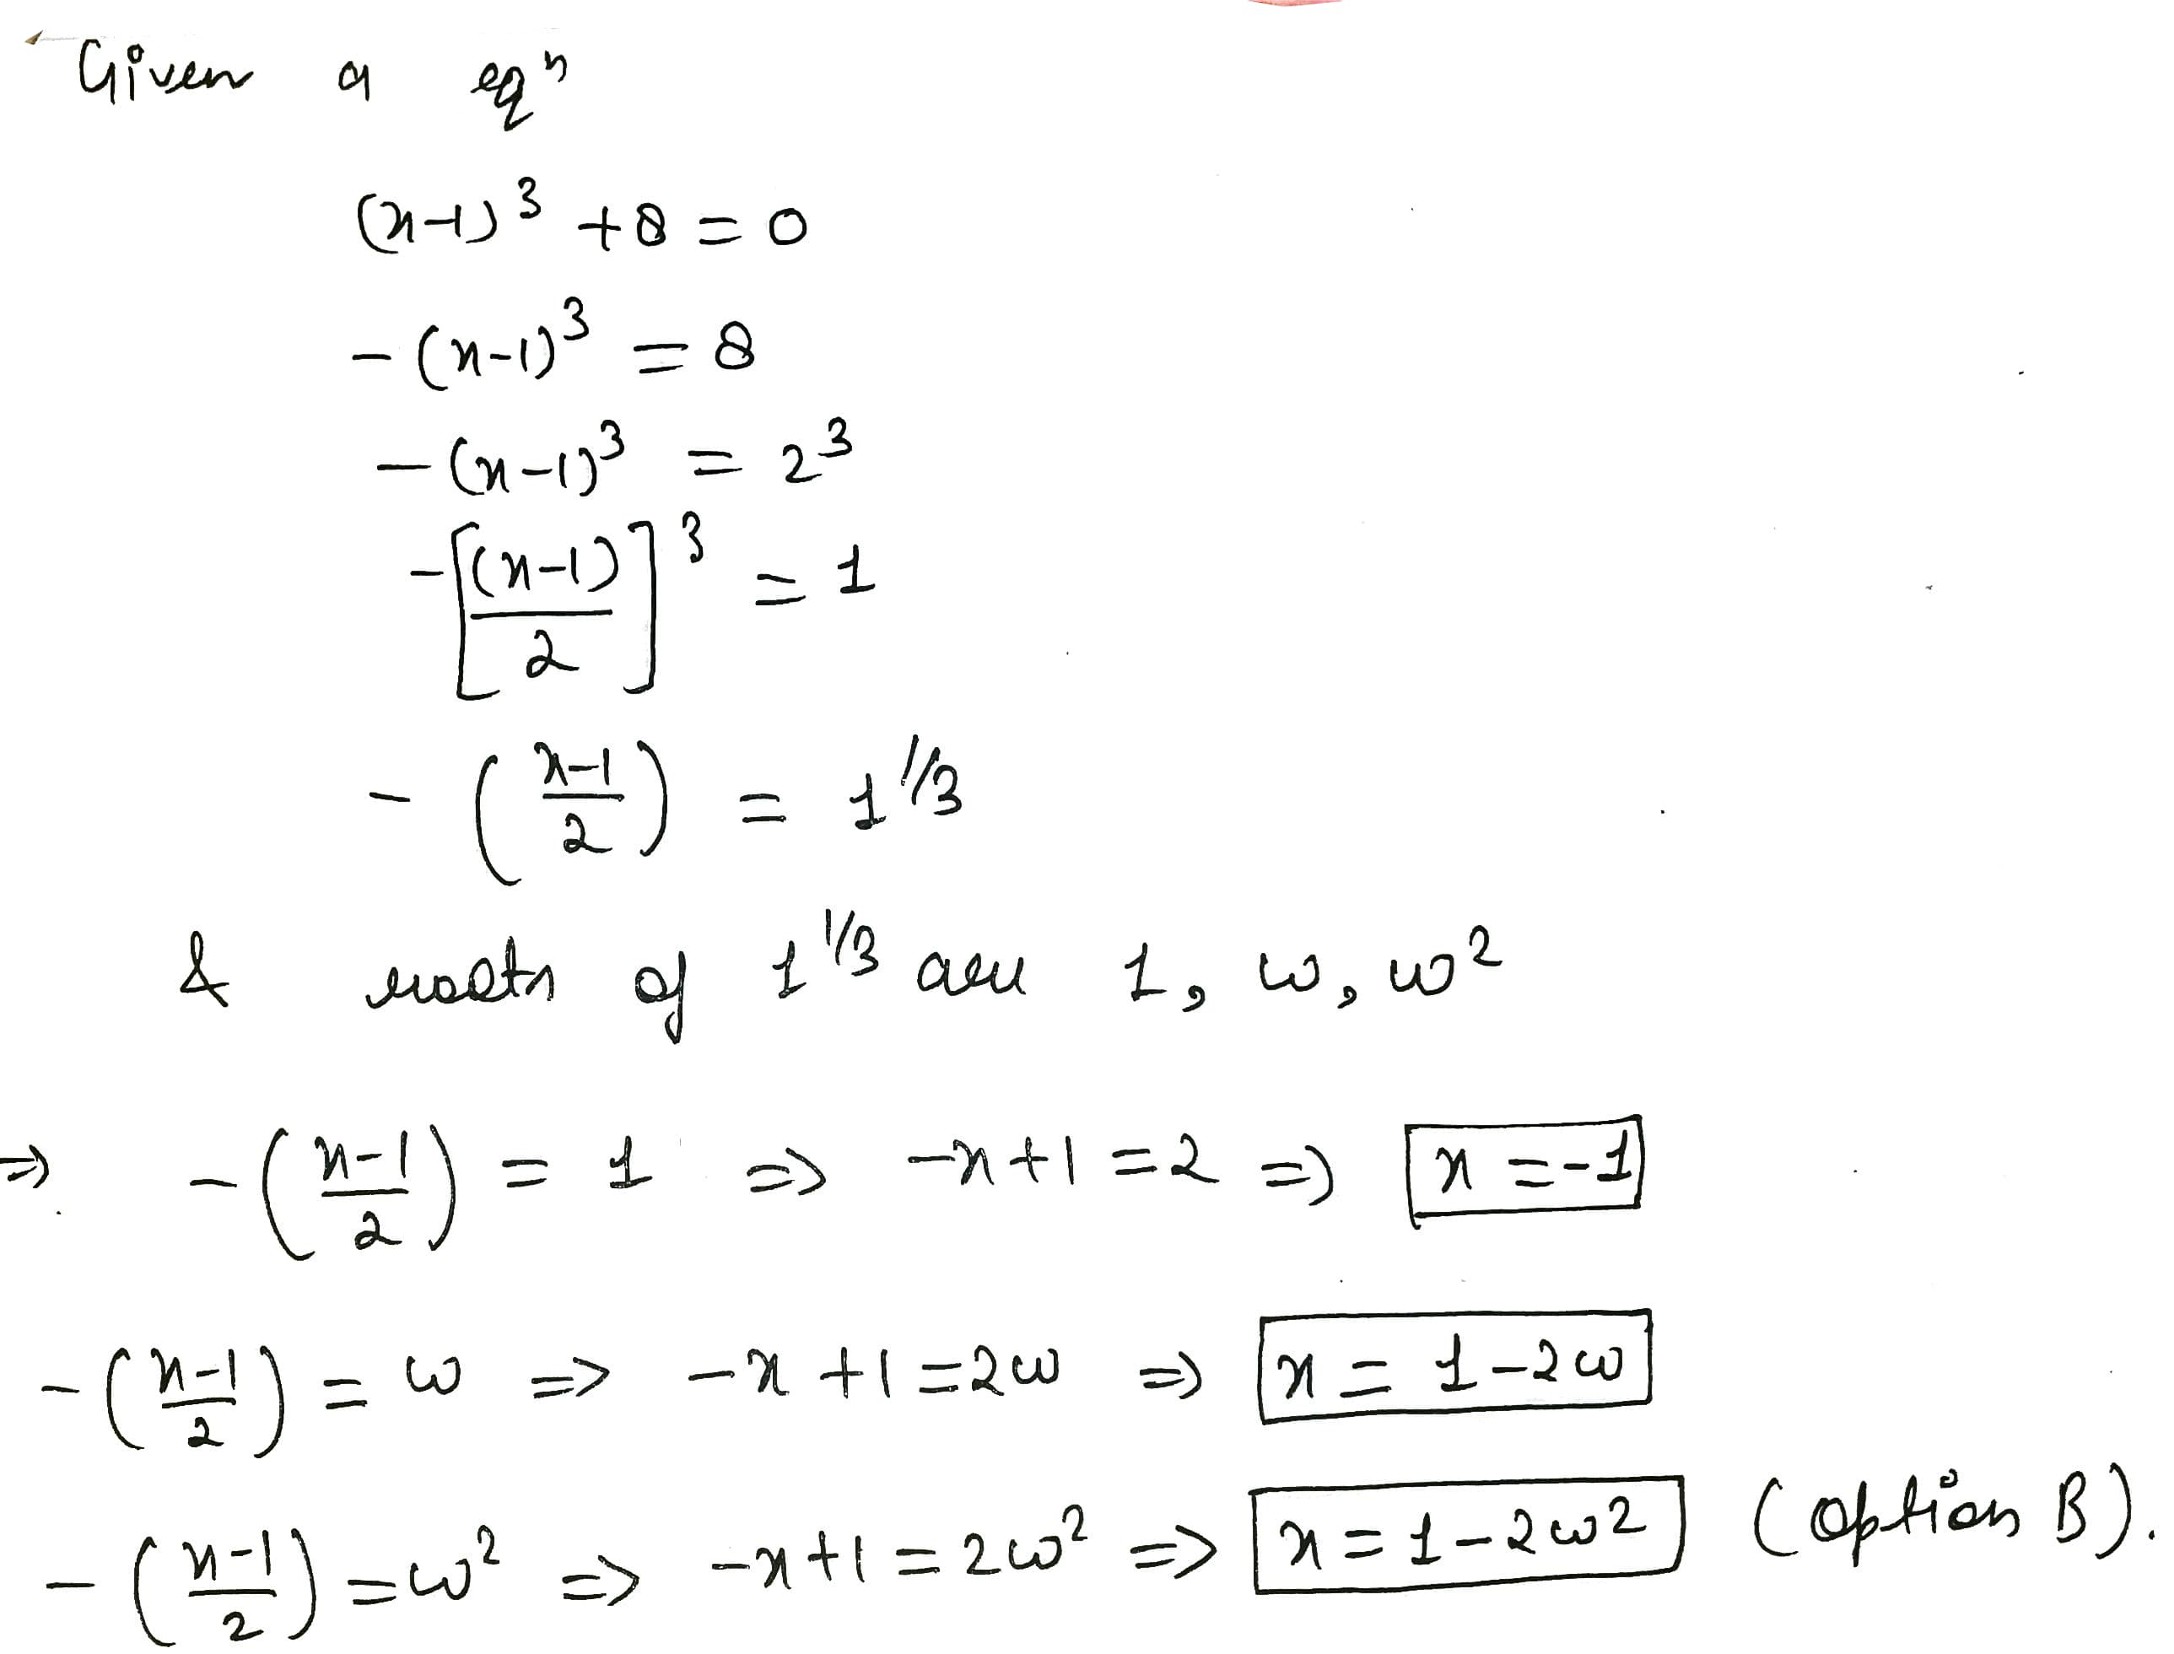 Given a eqⁿ
(x-1)³ +8 = 0
- (x-1)³ = 8
- (x-1)³ = 2³
- [(x-1)/2]³ = 1
- (x-1/2) = 1^1/3
& roots of 1^1/3 are 1, ω, ω²
=> - (x-1/2) = 1 => -x+1 = 2 => x = -1
- (x-1/2) = ω => -x+1 = 2ω => x = 1-2ω
- (x-1/2) = ω² => -x+1 = 2ω² => x = 1-2ω² (option B).